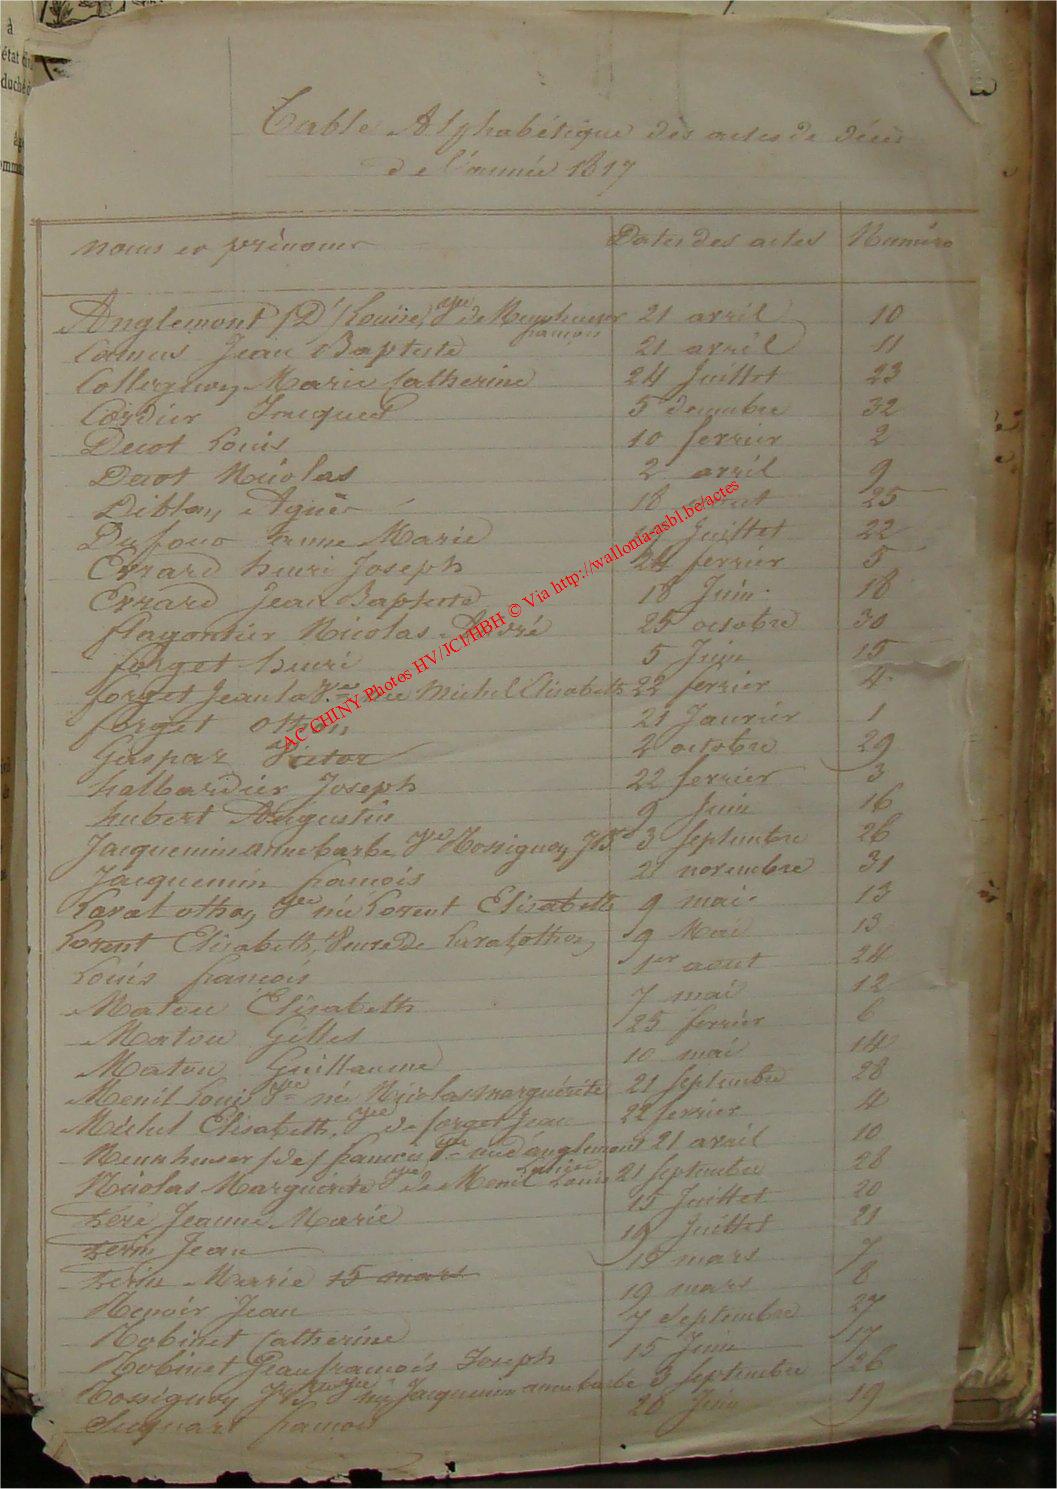 à
état
duché
Table Alphabétique des actes de décès
de l'année 1817
noms et prénoms Dates des actes Numéro
Anglemont (D') Louise, Vve de Neunheuser françois 21 avril 10
Camus Jean Baptiste 21 avril 11
Collignon, Marie Catherine 24 Juillet 23
Cordier Jacques 5 decembre 32
Decot Louis 10 ferrier 2
Decot Nicolas 2 avril 9
Agnès 18 aout 25
Dufour Jeanne Marie Juillet 22
Evrard henri Joseph 24 ferrier 5
Evrard Jean Baptiste 18 Juin 18
flagontier Nicolas André 25 octobre 30
forget henri 5 Juin 15
forget Jean la Vve née Michel Elisabeth 22 ferrier 4
forget Othon 21 Janvier 1
Gaspar Victor 2 octobre 29
halbardier Joseph 22 ferrier 3
hubert Augustin 9 Juin 16
Jacquemin anne barbe Vve Rossignon JBte 3 Septembre 26
Jacquemin françois 21 novembre 31
Laval othon, Vve née Lorent Elisabeth 9 mai 13
Lorent Elisabeth, Veuve de Laval, othon, 9 Mai 13
Louis françois 1er aout 24
Maton Elisabeth 7 mai 12
Maton Gilles 25 ferrier 6
Maton Guillaume 10 mai 14
Menil Louis Vve née Nicolas marguérite 21 Septembre 28
Michel Elisabeth, Vve de forget Jean 22 ferrier 4
Neunheuser (de) françois Vve née d'anglemont Louise 21 avril 10
Nicolas Marguérite Vve de Menil Louis 21 Septembre 28
Jeanne Marie 15 Juillet 20
Jean 19 Juillet 21
Marie 15 mars 19 mars 7
Renoir Jean 19 mars 8
Robinet Catherine 7 Septembre 27
Robinet Jean françois Joseph 15 Juin 17
Rossignon JBte Vve née Jacquemin anne barbe 3 Septembre 26
Suquart françois 20 Juin 19
AC CHINY Photos HV/JCI/HBH © Via http://wallonia-asbl.be/actes